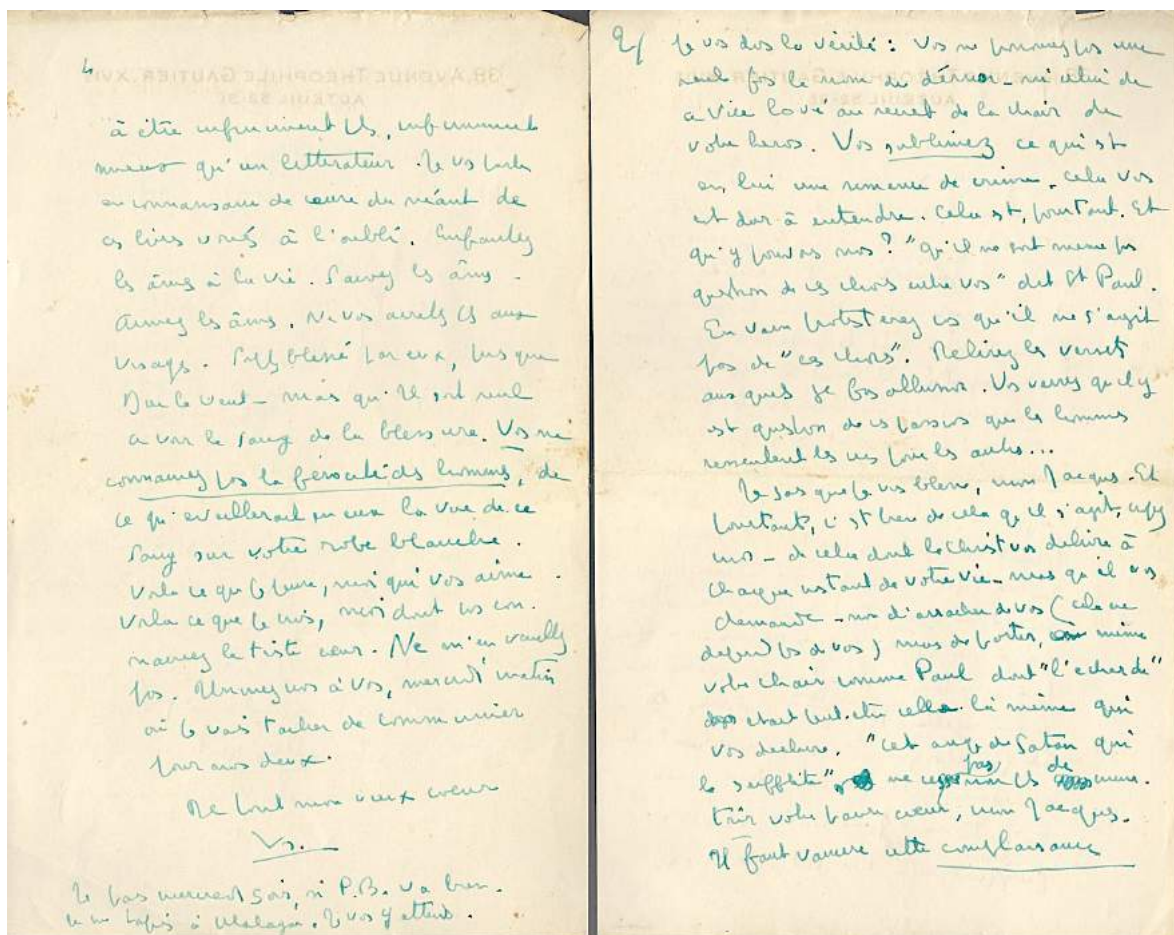 4
à être infiniment +, infiniment
mieux qu'un littérateur. Je vs parle
en connaissance de cause du néant de
ces livres voués à l'oubli. Enfantez
les âmes à la vie. Sauvez les âmes -
Aimez les âmes. Ne vos arrêtez + aux
visages. Soyez blessé par eux, puisque
Dieu le veut - mais qu'Il soit seul
à voir le sang de la blessure. Vos ne
connaissez pas la férocité des hommes, de
ce qu'éveillerait en eux la vue de ce
sang sur votre robe blanche.
Voila ce que je pense, moi qui vos aime.
Voila ce que je crois, moi dont vos con-
naissez le triste cœur. Ne m'en veuillez
pas. Unissez vos à vos, mercredi matin
où je vais tâcher de communier
pour nos deux.
De tout mon vieux cœur
Vs.
Je pars mercredi soir, si P.B. va bien.
à Malagar. Je vos y attends.
2/ Je vos dois la vérité : Vos ne prononcez pas une
seule fois le nom du démon - ni celui de
ce vice lové au secret de la chair de
votre heros. Vos sublimez ce qui est
en lui une semence de crime - Cela vos
est dur à entendre. Cela est, pourtant. Et
qu'y pouvons nos? "Qu'il ne soit meme pas
question de ces choses entre vos" dit St Paul.
En vain protesterez vs qu'il ne s'agit
pas de "ces choses". Relisez les versets
aux quels je fais allusion. Vos verrez qu'il y
est question de ces passions que les hommes
ressentent les uns pour les autres...
Je sais que je vos blesse, mon Jacques. Et
pourtant, c'est bien de cela qu'il s'agit, croyez
moi - de cela dont le Christ vos délivre à
chaque instant de votre vie - mais qu'il vos
demande - non d'arracher de vos (cela ne
dépend pas de vos) mais de porter, à même
votre chair comme Paul dont "l'echarde"
etait peut-etre celle là même qui
vos dechire. "Cet ange de Satan qui
le soufflète", ne cesse pas non + de meur-
trir votre pauvre cœur, mon Jacques.
Il faut vaincre cette complaisance